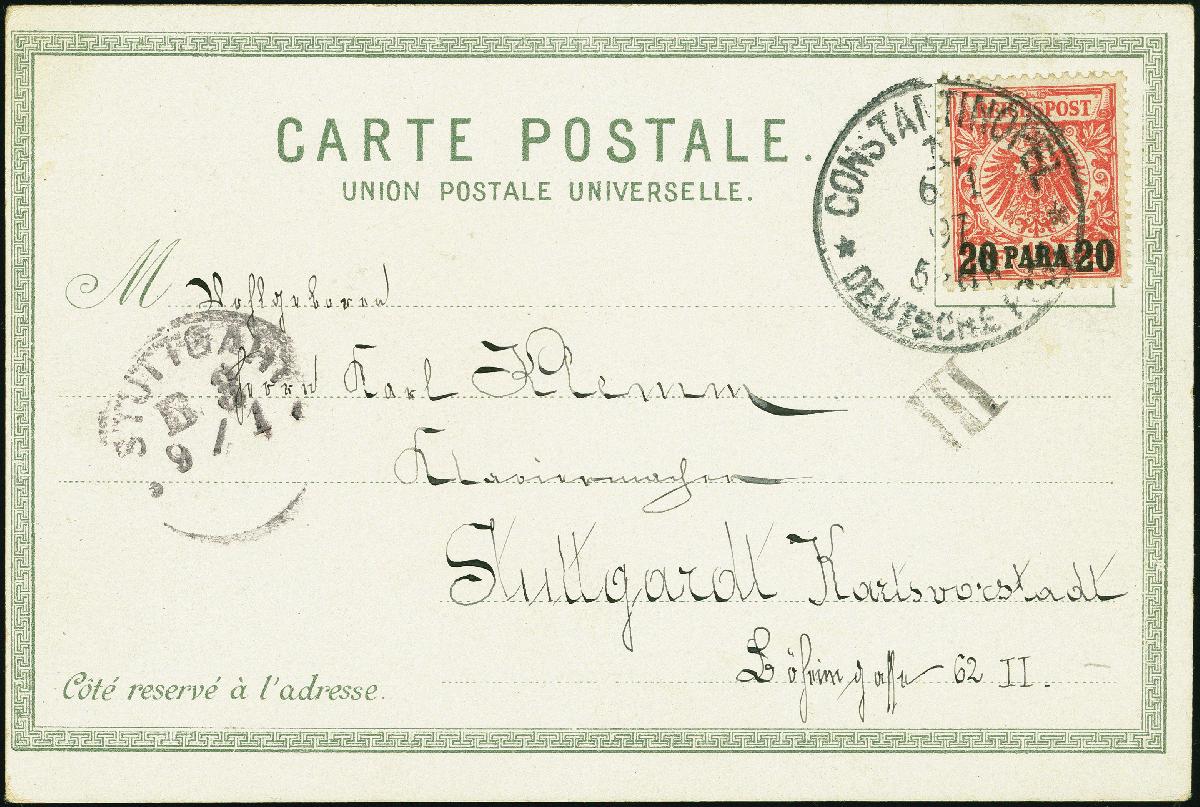 CARTE POSTALE.
UNION POSTALE UNIVERSELLE.
REICHSPOST
20 PARA 20
CONSTANTINOPEL
1
6 1
97
5-6N
* DEUTSCHE POST *
M Wohlgeboren
Herrn Karl Klemm
Klaviermacher
Stuttgardt Karlsvorstadt
Böheimgasse 62 II.
STUTTGART
B 3
9/1
III
Côté reservé à l'adresse.